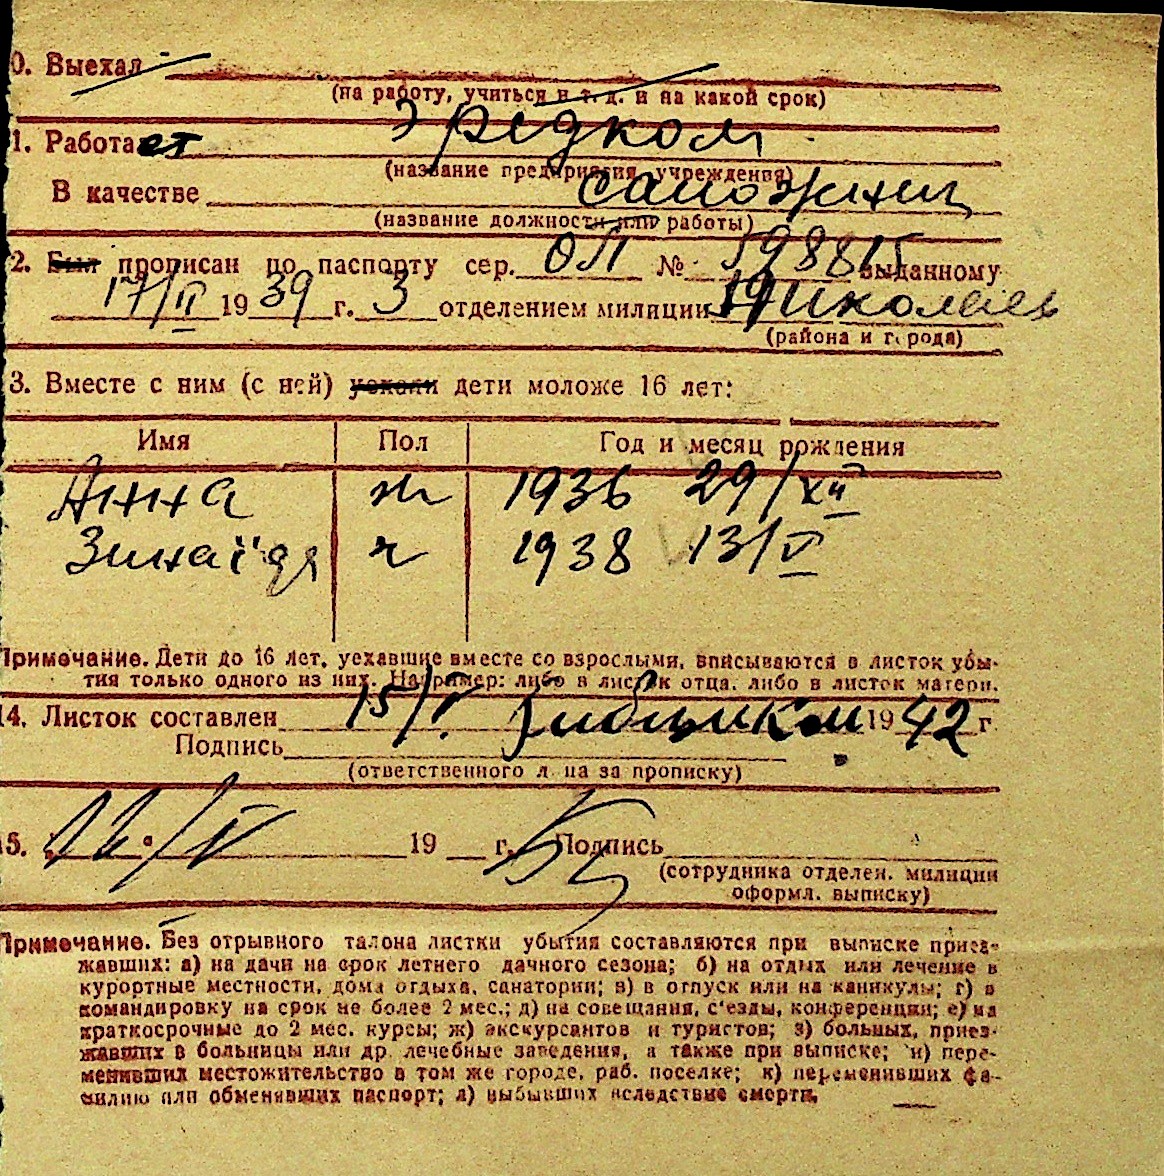 0. Выехал
(на работу, учиться и т. д. и на какой срок)
1. Работает
(название предприятия, учреждения)
В качестве
(название должности или работы)
2. Был прописан по паспорту сер. ОП № 598815 выданному
17/II 1939 г. 3 отделением милиции
(района и города)
3. Вместе с ним (с ней) уехали дети моложе 16 лет:
Имя Пол Год и месяц рождения
Анна ж 1936 29/XII
Зинаїда ч 1938 13/V
Примечание. Дети до 16 лет, уехавшие вместе со взрослыми, вписываются в листок убы-
тия только одного из них. Например: либо в листок отца, либо в листок матери.
14. Листок составлен 15/V 1942 г
Подпись
(ответственного лица за прописку)
15. 19 г. Подпись
(сотрудника отделен. милиции
оформл. выписку)
Примечание. Без отрывного талона листки убытия составляются при выписке приез-
жавших: а) на дачи на срок летнего дачного сезона; б) на отдых или лечение в
курортные местности, дома отдыха, санатории; в) в отпуск или на каникулы; г) в
командировку на срок не более 2 мес.; д) на совещания, с'езды, конференции; е) на
краткосрочные до 2 мес. курсы; ж) экскурсантов и туристов; з) больных, приез-
жавших в больницы или др. лечебные заведения, а также при выписке; и) пере-
менивших местожительство в том же городе, раб. поселке; к) переменивших фа-
милию или обменявших паспорт; л) выбывших вследствие смерти.